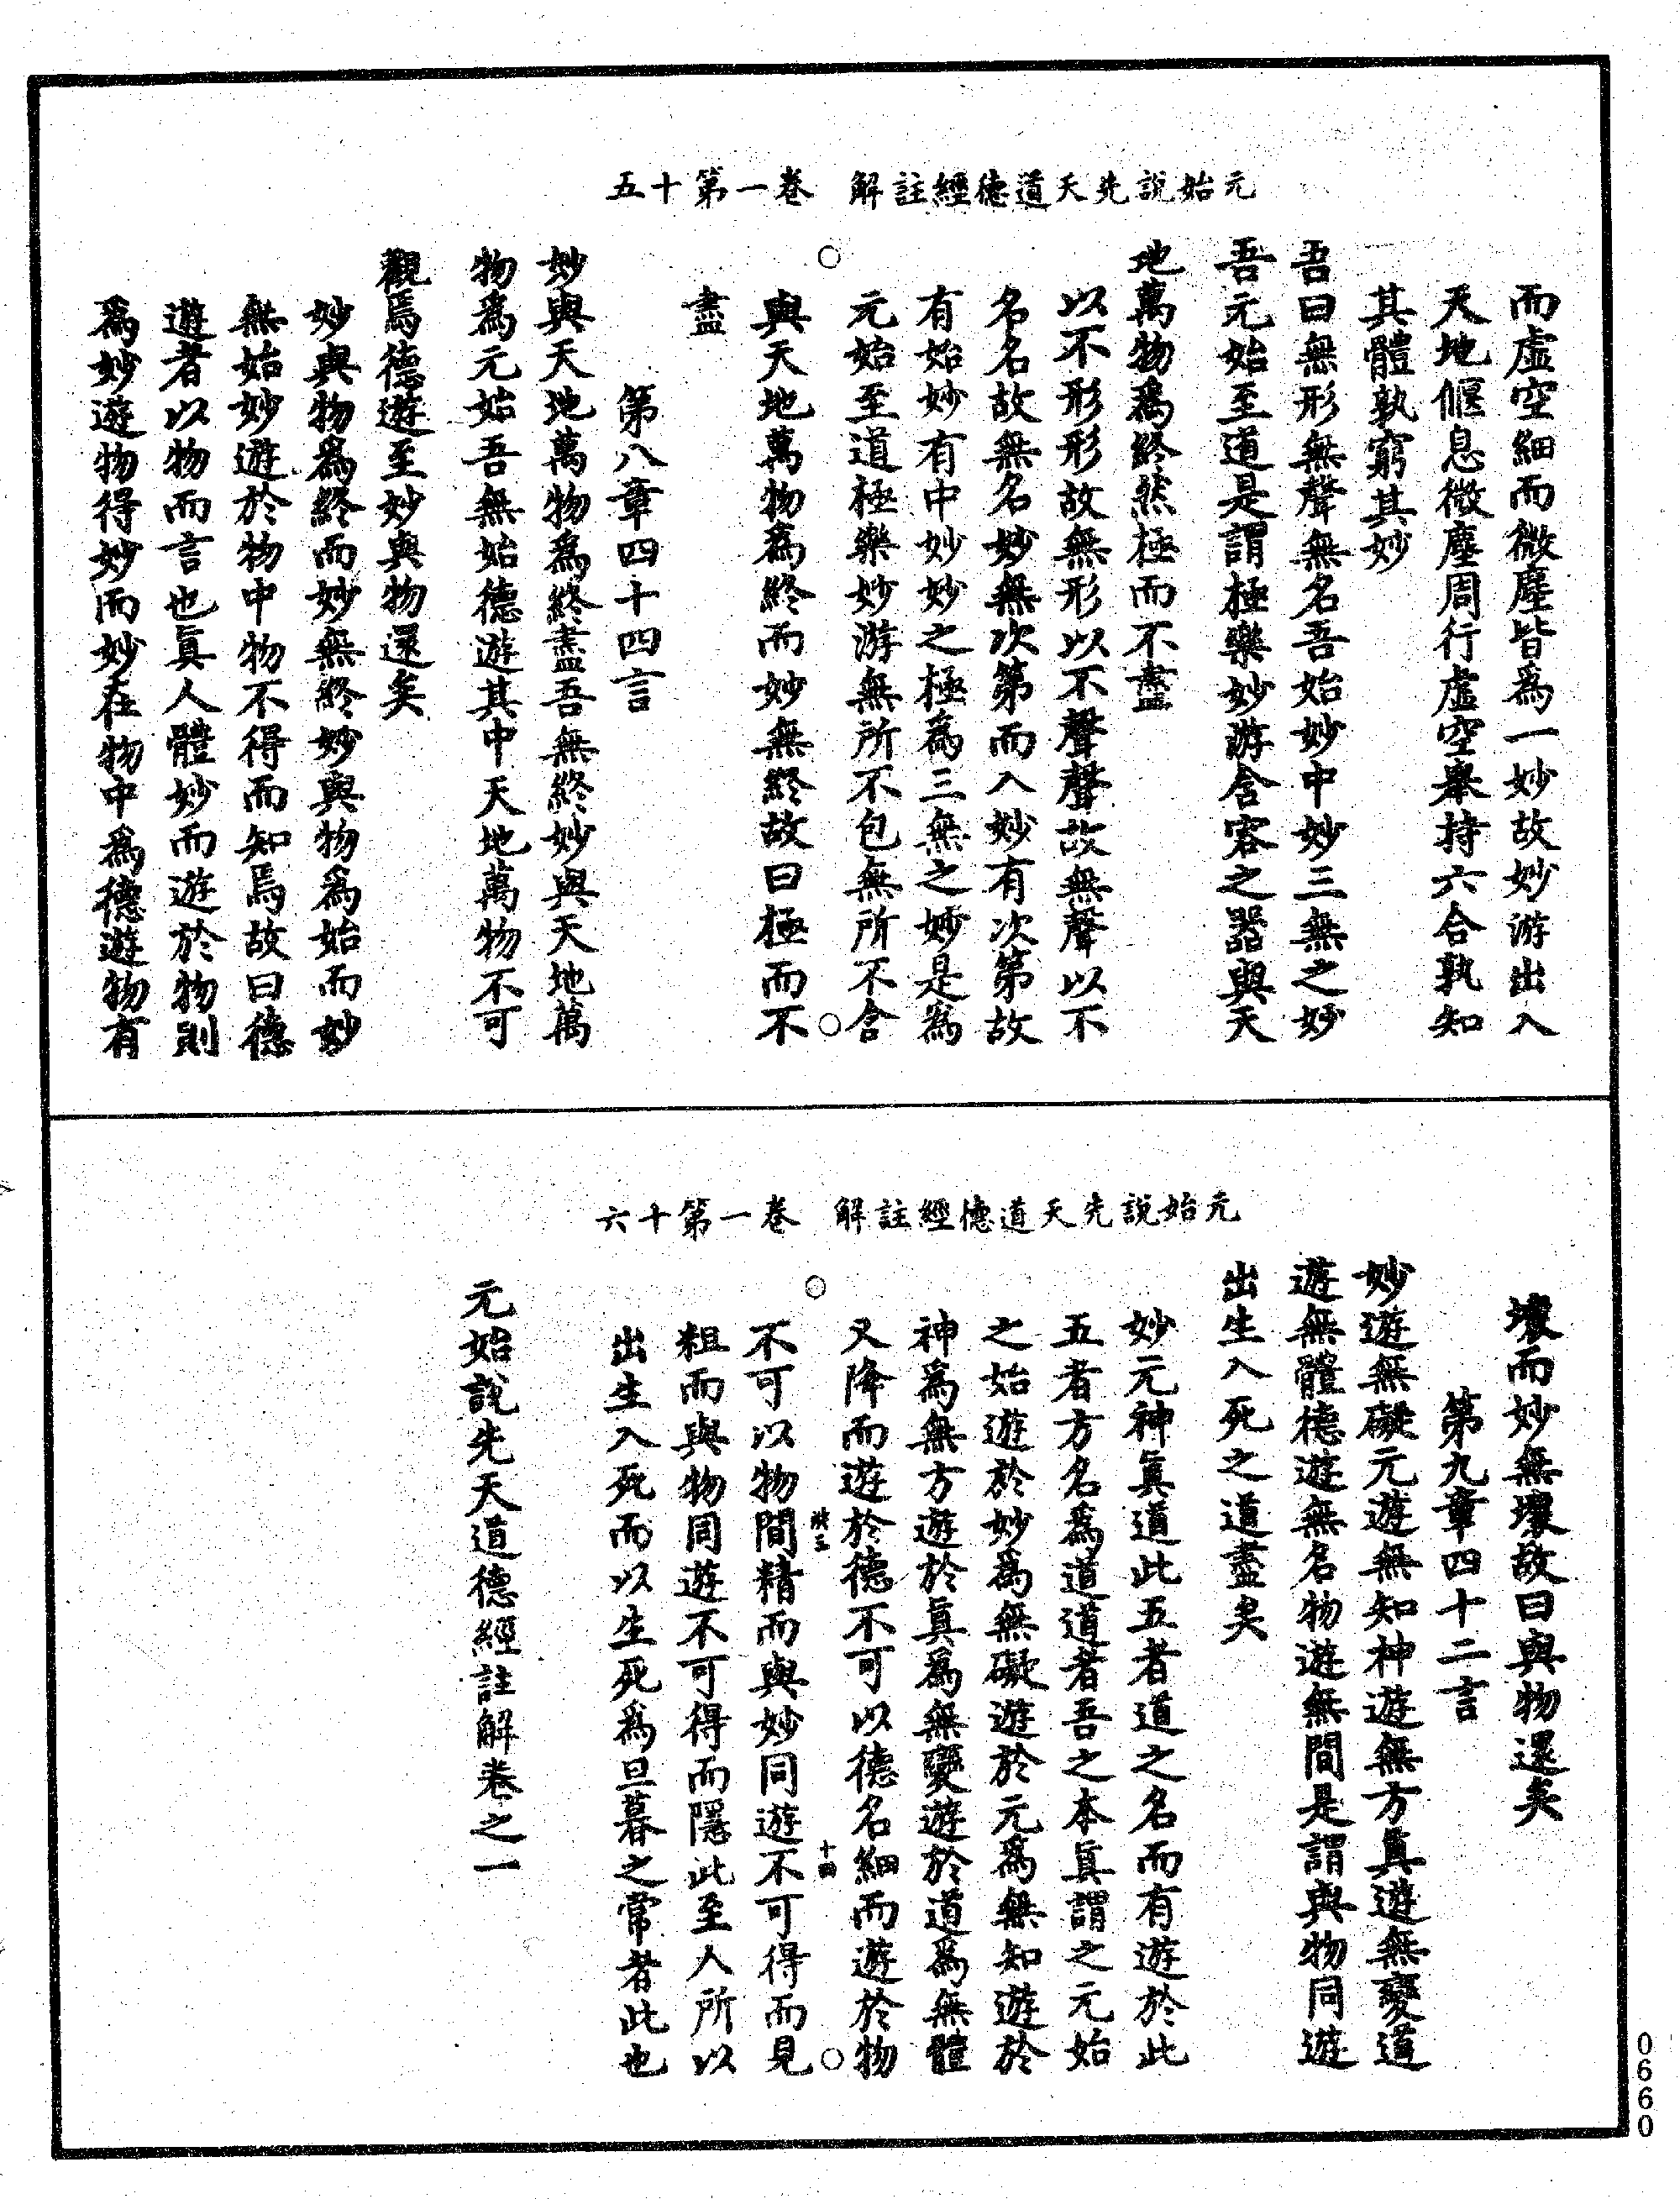 元始說先天道德經註解　卷一第十五
而虛空細而微塵皆爲一妙故妙游出入
天地偃息微塵周行虛空舉持六合孰知
其體孰窮其妙
吾曰無形無聲無名吾始妙中妙三無之妙
吾元始至道是謂極樂妙游含容之器與天
地萬物爲終然極而不盡
以不形形故無形以不聲聲故無聲以不
名名故無名妙無次第而入妙有次第故
有始妙有中妙妙之極爲三無之妙是爲
元始至道極樂妙游無所不包無所不含
與天地萬物爲終而妙無終故曰極而不
盡
第八章四十四言
妙與天地萬物爲終盡吾無終妙與天地萬
物爲元始吾無始德遊其中天地萬物不可
觀焉德遊至妙與物還矣
妙與物爲終而妙無終妙與物爲始而妙
無始妙遊於物中物不得而知焉故曰德
遊者以物而言也眞人體妙而遊於物則
爲妙遊物得妙而妙在物中爲德遊物有
元始說先天道德經註解　卷一第十六
壞而妙無壞故曰與物還矣
第九章四十二言
妙遊無礙元遊無知神遊無方眞遊無變道
遊無體德遊無名物遊無間是謂與物同遊
出生入死之道盡矣
妙元神眞道此五者道之名而有遊於此
五者方名爲道道者吾之本眞謂之元始
之始遊於妙爲無礙遊於元爲無知遊於
神爲無方遊於眞爲無變遊於道爲無體
又降而遊於德不可以德名細而遊於物
十四
不可以物間精而與妙同遊不可得而見
粗而與物同遊不可得而隱此至人所以
出生入死而以生死爲旦暮之常者此也
元始說先天道德經註解卷之一
0660